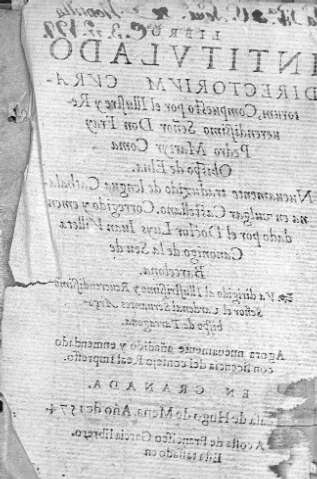 LIBRO
INTITVLADO
DIRECTORIVM CVRA-
torum, Compuesto por el Illustre y Re-
uerendissimo Señor Don Fray
Pedro Martyr Coma
Obispo de Elna.
Nueuamente traduzido de lengua Cathala
na en vulgar Castellano. Corregido y emen
dado por el Doctor Luys Iuan Villeta
Canonigo de la Seu de
Barcelona.
Va dirigido al Illustrissimo y Reuerendissimo
Señor el Cardenal Seruantes Arço-
bispo de Tarragona.
Agora nueuamente añadido y enmendado
con licencia del consejo Real Impresso
EN GRANADA.
casa de Hugo de Mena. Año de 1574.
A costa de Francisco Garcia librero.
Esta tassado en